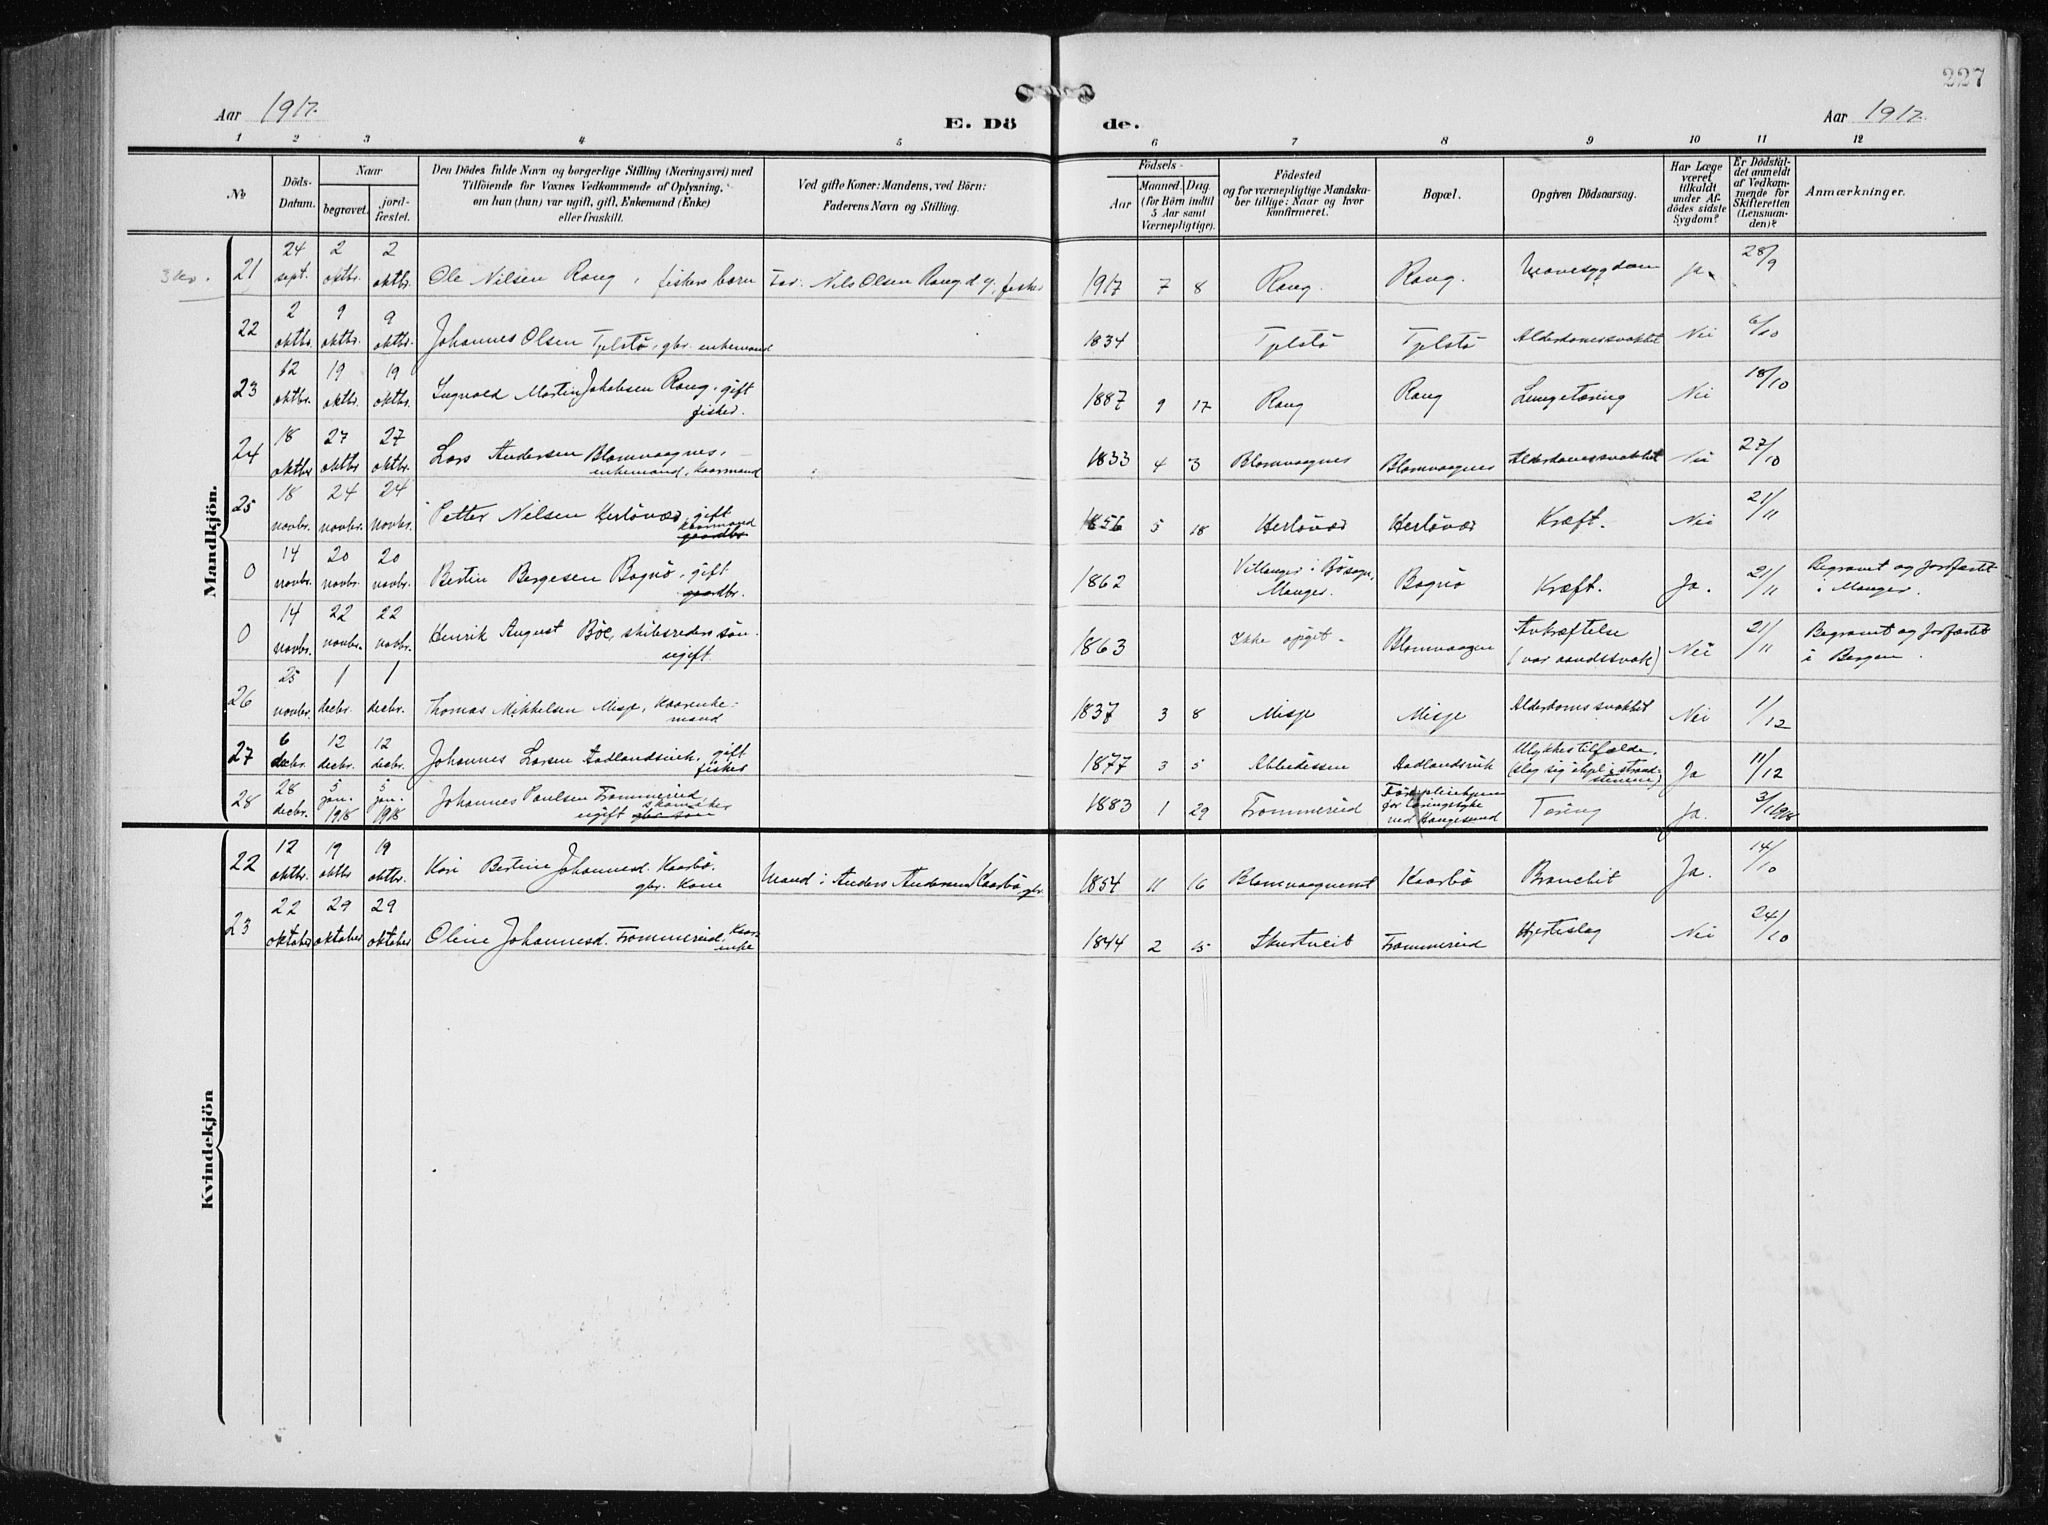 227
Aar 1917. E. Dö de. Aar 1917.
1 2 3 4 5 6 7 8 9 10 11 12
No
Döds-Datum.
Naar
begravet.
jord-fæstet.
Den Dödes fulde Navn og borgerlige Stilling (Næringsvei) med
Tilföiende for Voxnes Vedkommende af Oplysning,
om han (hun) var ugift, gift, Enkemand (Enke)
eller fraskilt.
Ved gifte Koner: Mandens, ved Börn:
Faderens Navn og Stilling.
Födsels-
Aar
Maaned. Dag
(for Börn indtil
5 Aar samt
Værnepligtige).
Födested
og for værnepligtige Mandska-
ber tillige: Naar og hvor
konfirmeret.
Bopæl.
Opgiven Dödsaarsag.
Har Læge
været
tilkaldt
under Af-
dödes sidste
Sygdom?
Er Dödsfal-
det anmeldt
af Vedkom-
mende for
Skifteretten
(Lensman-
den)?
Anmærkninger.
Mandkjön.
3 kv.
21 24 sept. 2 oktbr. 2 oktbr. Ole Nilsen Rong, fiskers barn Far: Nils Olsen Rong d.y., fisker 1917 7 8 Rong. Rong. Mavesygdom ja 28/9
22 2 oktbr. 9 oktbr. 9 oktbr. Johannes Olsen Tjelstö, gbr. enkemand 1834 Tjelstö Tjelstö Alderdomssvakhet Nei 6/10
23 12 oktbr. 19 oktbr. 19 oktbr. Ingvald Martin Jakobsen Rong, gift
fisker. 1887 9 17 Rong Rong Lungetæring Nei 18/10
24 18 oktbr 27 oktbr 27 oktbr. Lars Andersen Blomvaagnes,
enkemand, kaarmand 1833 4 3 Blomvaagnes Blomvaagnes Alderdomssvakhet Nei 27/10
25 18 novbr. 24 novbr. 24 novbr. Petter Nilsen Hertövær, gift
kaarmand
gaardbr 1856 5 18 Hertövær Hertövær Kræft. Nei 21/11
0 14 novbr. 20 novbr. 20 novbr. Bertin Børgesen Bognö, gift
gaardbr. 1862 Villanger i Bösogn,
Manger. Bognö Kræft. Ja. 21/11 Begravet og jordfæstet
i Manger.
0 14 novbr. 22 novbr. 22 novbr. Henrik August Böe, skibsreders sön.
ugift 1863 Ikke opgit - Blomvaagen Avkræftelse
(var aandssvak) Nei 21/11 Begravet og jordfæstet
i Bergen.
26 25 novbr. 1 decbr. 1 decbr. Thomas Mikkelsen Misje, kaarenke-
mand 1837 3 8 Misje Misje Alderdomssvakhet Nei 1/12
27 6 decbr. 12 decbr. 12 decbr. Johannes Larsen Aadlandsvik, gift
fisker 1877 3 5 Abbedissen Aadlandsvik Ulykkestilfælde.
(slog sig ihjel i strand-
stenene) Ja 11/12
28 28 decbr. 5 jan. 1918 5 jan. 1918 Johannes Paulsen Frommereid,
skomaker
ugift gbr. sön 1883 1 29 Frommereid pleiehjem
for tæringssyke
ved Haugesund Tæring Ja. 3/1 1918
Kvindekjön
22 12 oktbr. 19 oktbr 19 oktbr. Kari Bertine Johannesd. Kaarbö.
gbr. kone Mand: Anders Andersen Kaarbö, gbr. 1854 11 16 Blomvaagnes Kaarbö Bronchit Ja. 14/10
23 22 oktober 29 oktober 29 oktober Oline Johannesd. Frommereid, Kaar-
enke 1844 2 15 Skurtveit Frommereid Hjerteslag Nei 24/10